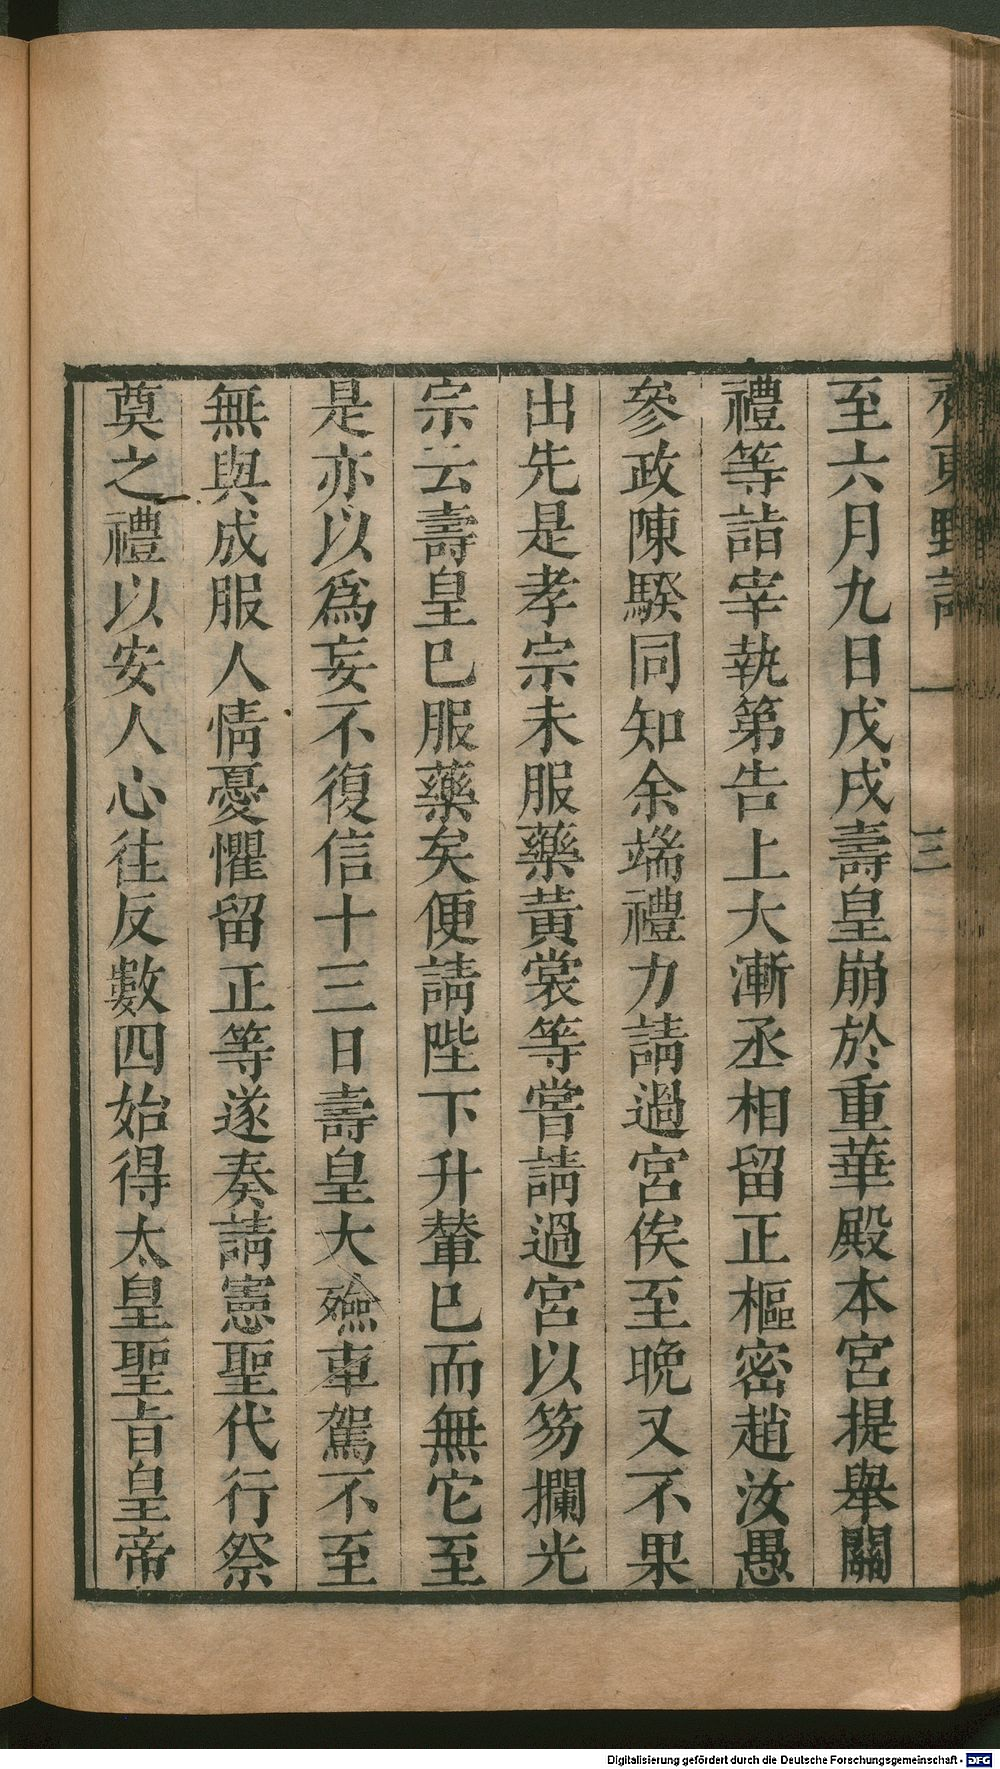 至六月九日戊戌壽皇崩於重華殿本宮提舉關
禮等詣宰執第告上大漸丞相留正樞密趙汝愚
參政陳騤同知余端禮力請過宮俟至晚又不果
出先是孝宗未服藥黃裳等嘗請過宮以笏攔光
宗云壽皇已服藥矣便請陛下升輦已而無它至
是亦以爲妄不復信十三日壽皇大殮車駕不至
無與成服人情憂懼留正等遂奏請憲聖代行祭
奠之禮以安人心往反數四始得太皇聖旨皇帝
三
Digitalisierung gefördert durch die Deutsche Forschungsgemeinschaft - DFG